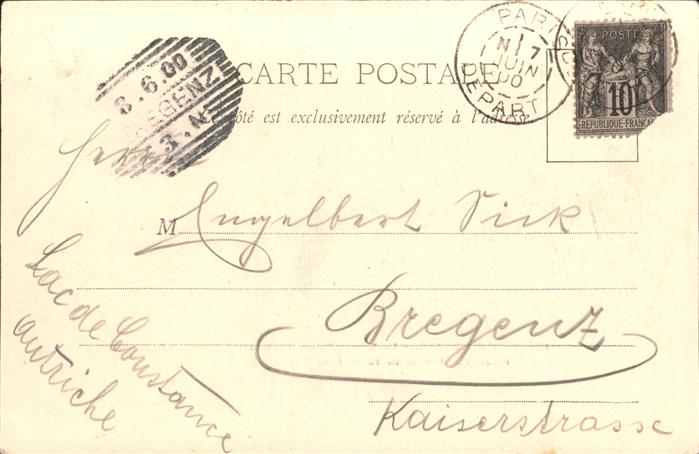 8.6.00
BREGENZ
3.N
PARIS
7
JUIN
00
DEPART
POSTE
10
REPUBLIQUE FRANCAISE
CARTE POSTALE
Ce côté est exclusivement réservé à l'adresse
Herrn
M Engelbert Sick
Bregenz
Kaiserstrasse
Lac de Constance
Autriche